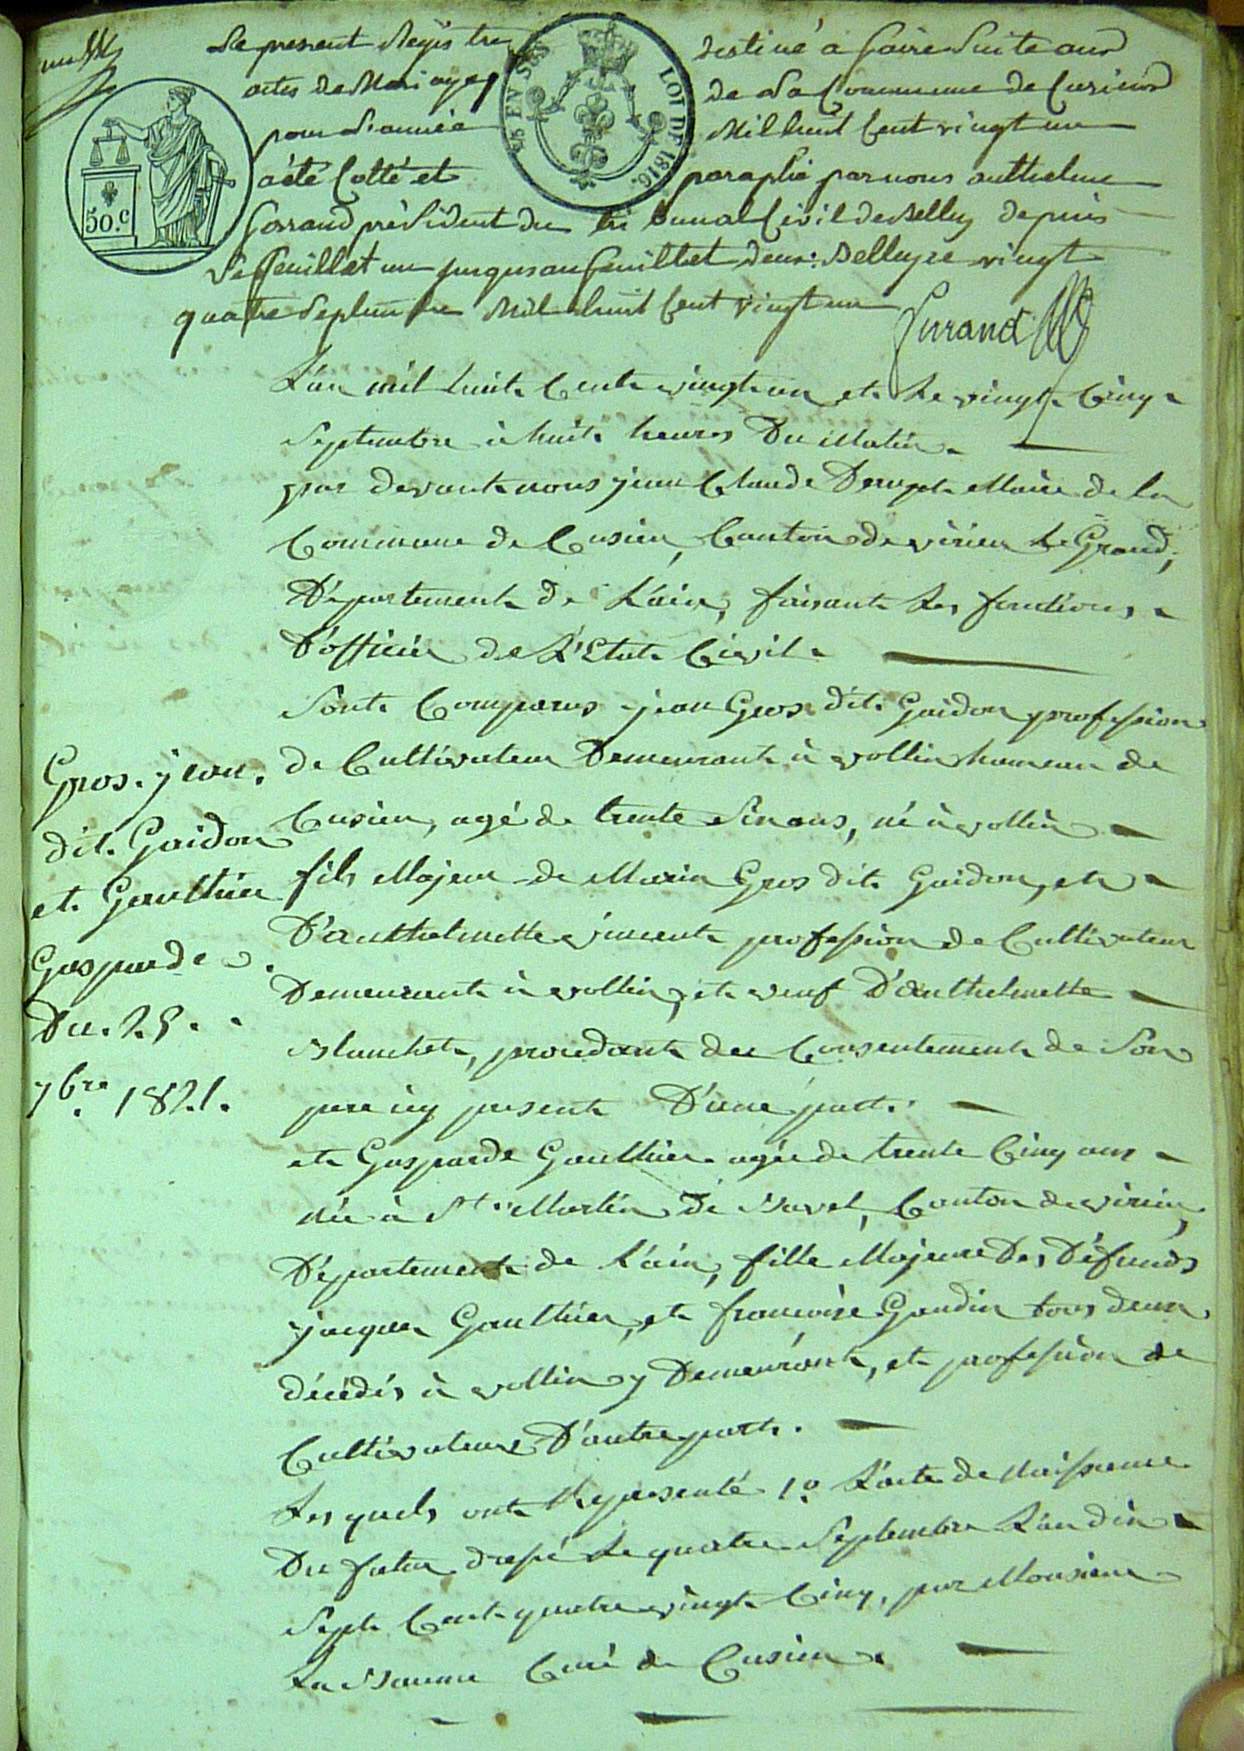 Le present Registre destiné a faire Suite aux
actes de Mariages de La Commune de Cuzieux
pour L'année Mil huit Cent vingt un
a été Cotté et paraphé par nous anthelme
président du tribunal Civil de Belley depuis
Le feuillet un jusqu'au feuillet deux. Belley ce vingt
quatre Septembre Mil huit Cent vingt un
50.c
LOI DE 1816.
L'an mil huit Cent vingt un et Le vingt Cinq
Septembre à huit heures Du Matin
par devant nous jean Claude Maire de la
Commune de Cusieu, Canton de virieu Le Grand,
Département de L'ain, faisant Les fonctions
D'officier de L'Etat Civil.
Sont Comparus jean Gros dit Gaidon profession
de Cultivateur Demeurant à vollien hameau de
Cusieu, agé de trente Six ans, né à vollien
fils Majeur de Marin Gros dit Gaidon, et
D'anthelmette vincent profession de Cultivateur
Demeurant à vollien, et veuf D'anthelmette
Blanchet, procedant du Consentement de Son
pere icy present D'une part.
et Gasparde Gaulthier agée de trente Cinq ans
née à St. Martin De Bavel, Canton de virieu,
Département de L'ain, fille Majeure Des Défunds
jacques Gaulthier, et francoise Gaudin tous deux
décédés à vollien y Demeurant, et profession de
Cultivateurs D'autre part.
Les quels ont Representé 1o. L'acte de Naissance
Du futur dressé Le quatre Septembre L'an dix
Sept Cent quatre vingt Cinq, par Monsieur
La Curé de Cusieu.
Gros. jean.
dit. Gaidon
et. Gaulthier
Gasparde
Du. 25.
7bre. 1821.